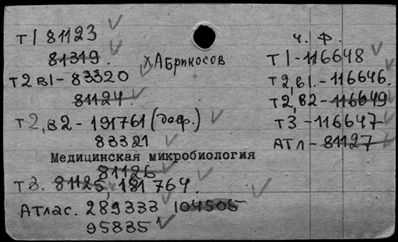 т1 81123
81319.
х Абрикосов
т2 в1- 83320
81124
т2, в2 - 191761 (деф.)
83321
Медицинская микробиология
81126
т3. 81125, 191764.
Атлас. 289333 104505
95835
ч. ф.
т1-116648
т2, в1.-116646.
т2, в2-116649
т3-116647
Атл-81127